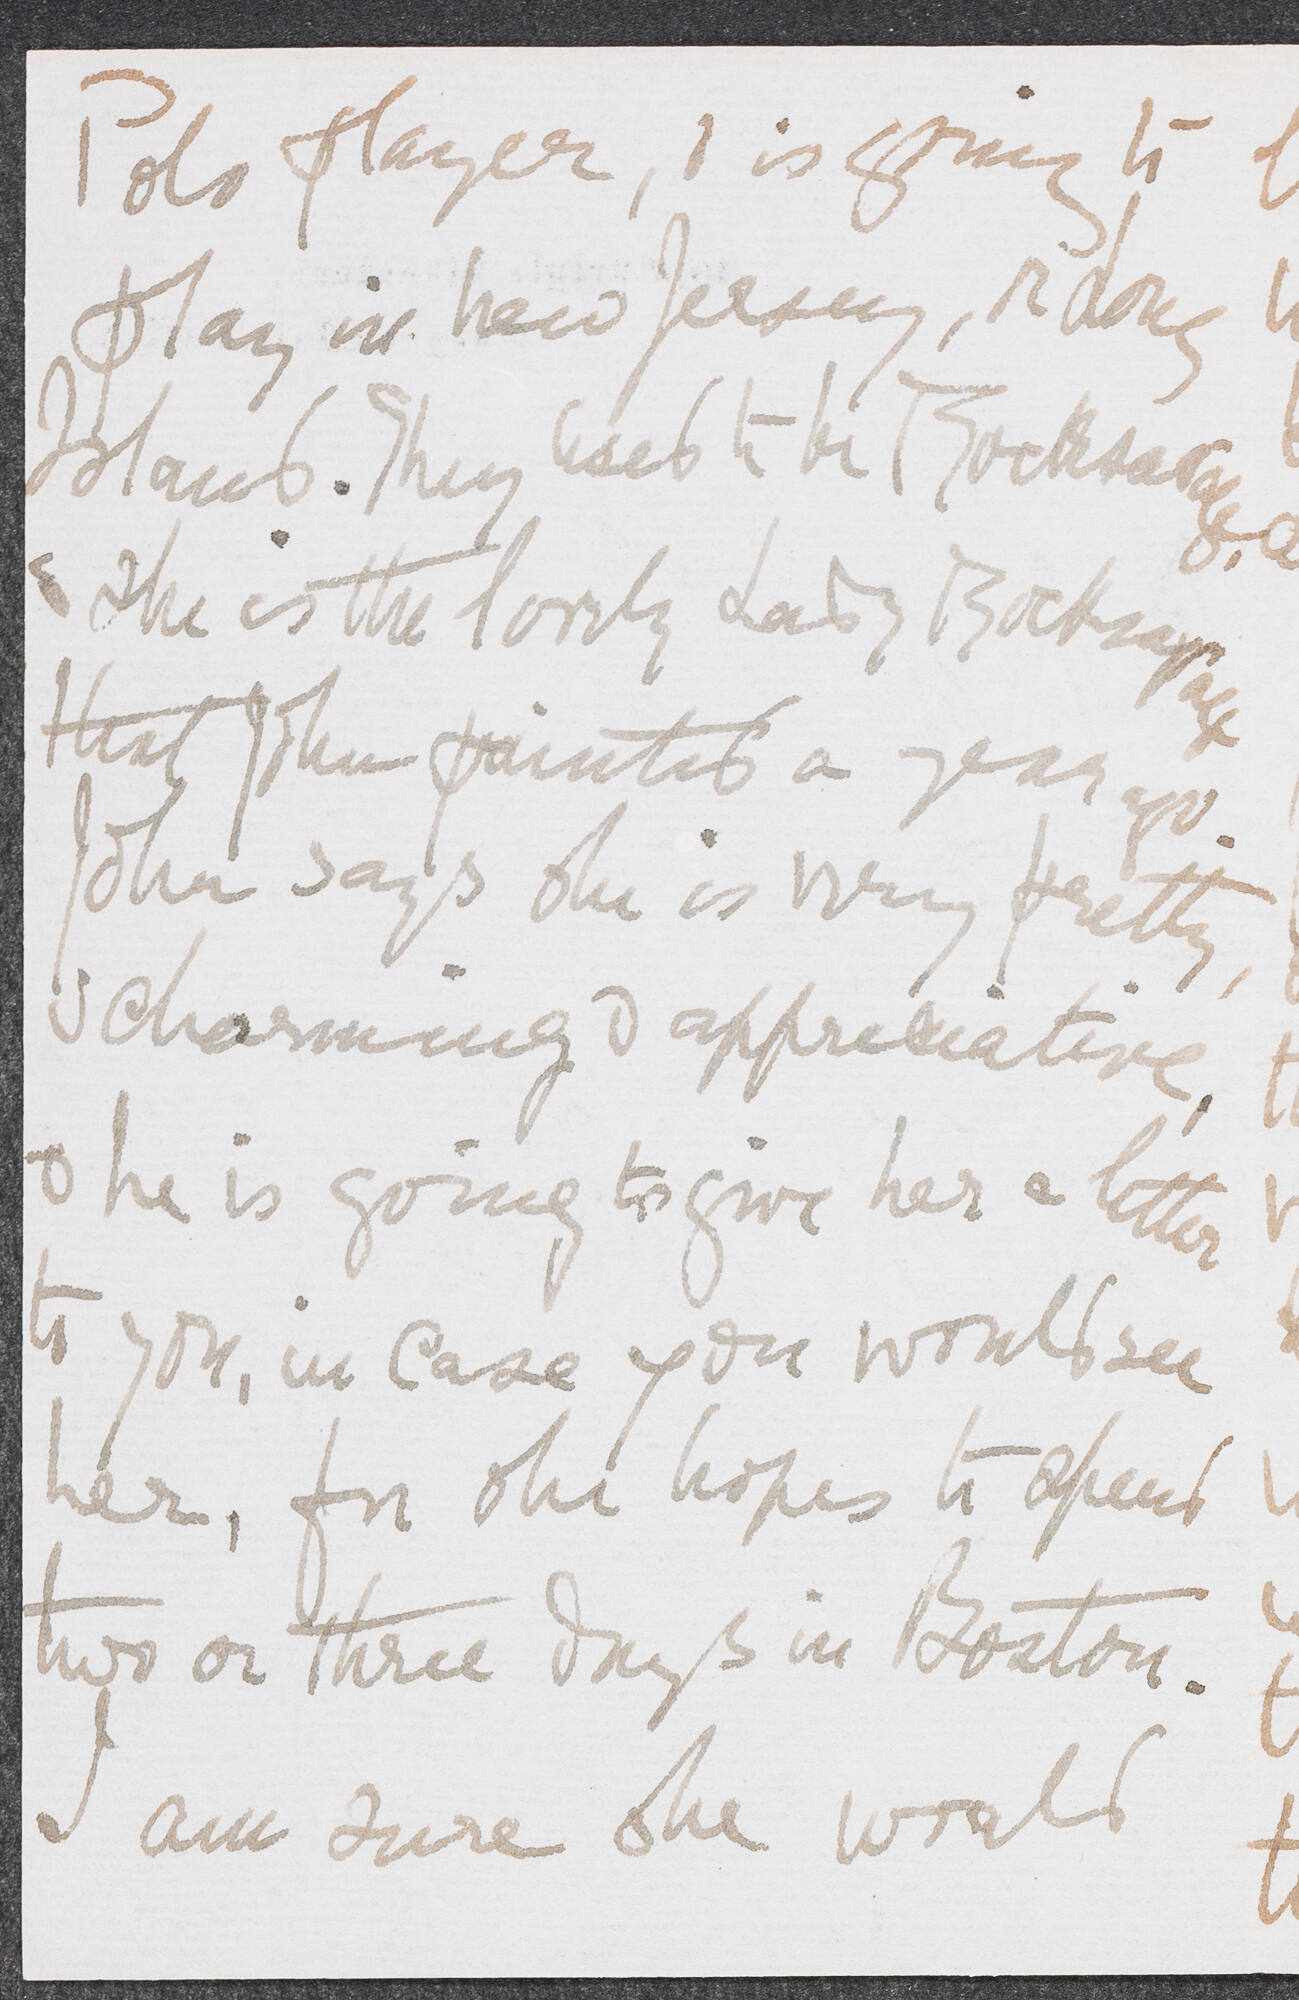 Polo player, & is going to
play in New Jersey, or Long
Island. They used to be Rocksavage,
& she is the lovely Lady Rocksavage
that John painted a year ago.
John says she is very pretty,
& charming & appreciative,
& he is going to give her a letter
to you, in case you would see
her, for she hopes to spend
two or three days in Boston.
I am sure she would